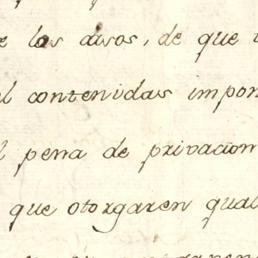 los avisos, de que
contenidas impon
pena de privacion
que otorgaren qual